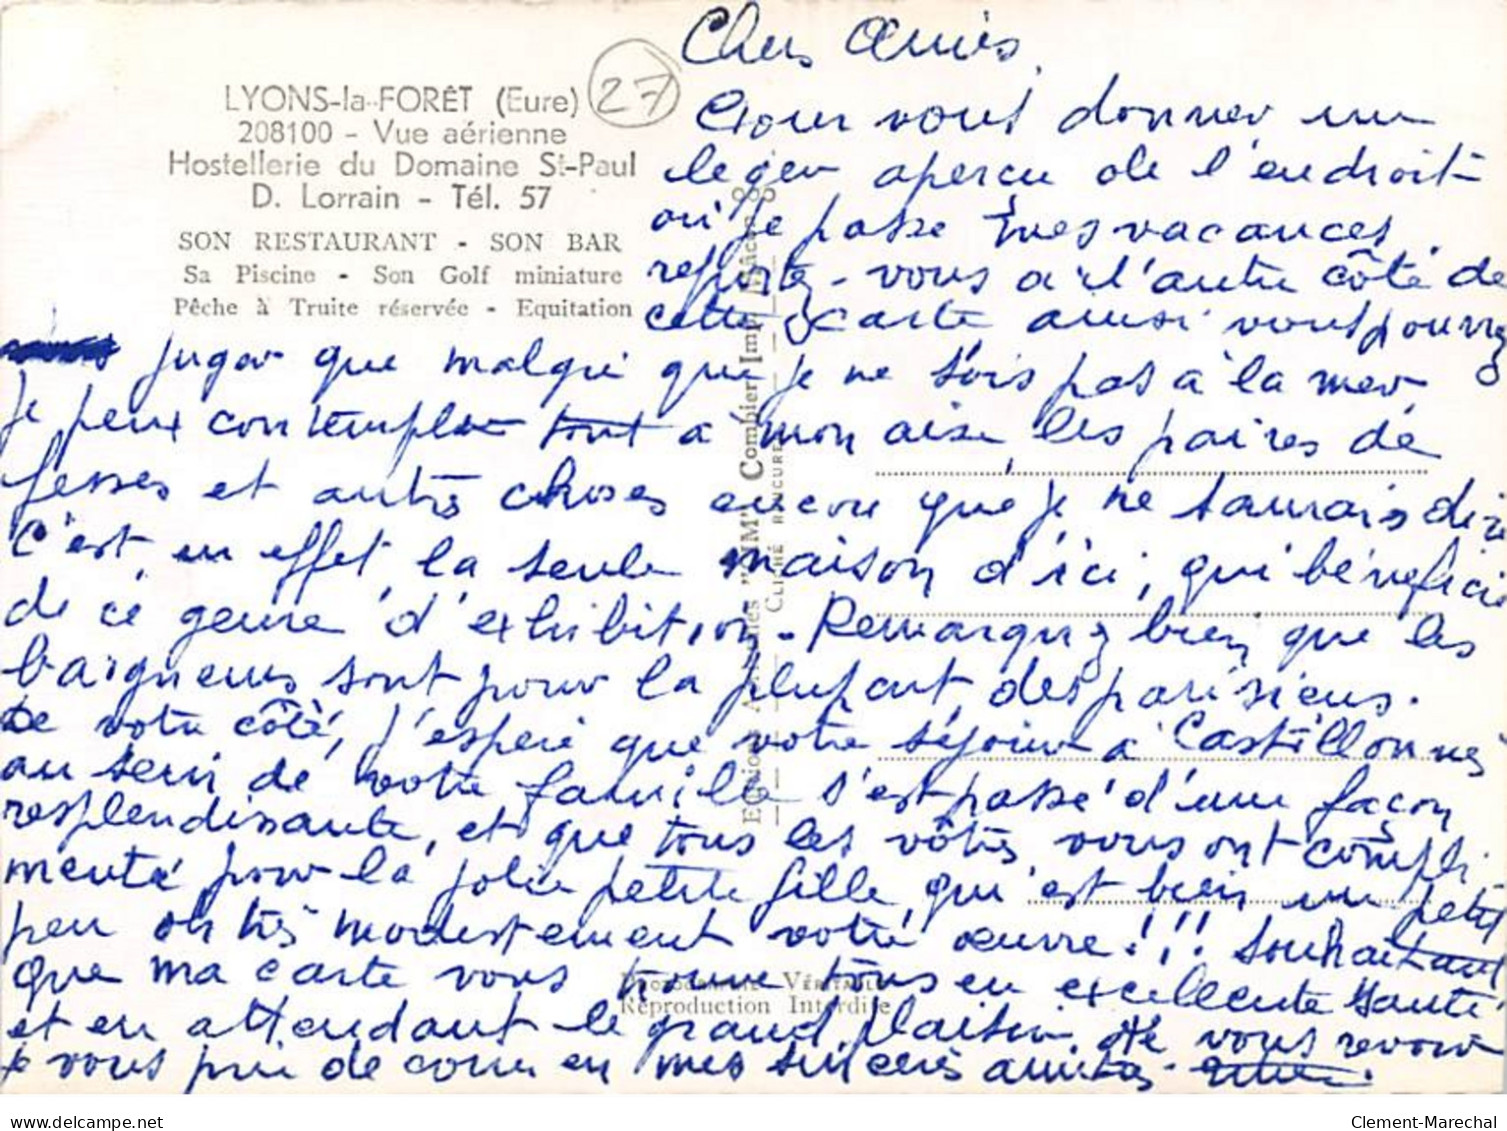 LYONS-la-FORÊT (Eure)
208100 - Vue aérienne
Hostellerie du Domaine St-Paul
D. Lorrain - Tél. 57
SON RESTAURANT - SON BAR
Sa Piscine - Son Golf miniature
Pêche à Truite réservée - Equitation
27
Chers Amis,
Pour vous donner un
leger aperçu de l'endroit
où je passe mes vacances,
reportez-vous à l'autre côté de
cette carte ainsi vous pourrez
juger que malgré que je ne sois pas à la mer,
je peux contempler tout à mon aise, les paires de
fesses et autres choses encore que je ne saurais dire
C'est en effet la seule maison d'ici, qui bénéficie
de ce genre d'exhibition. Remarquez bien que les
baigneurs sont pour la plupart, des parisiens.
De votre côté, j'espère que votre séjour à Castillonnès
au sein de votre famille s'est passé d'une façon
resplendissante, et que tous les vôtres, vous ont compli-
menté pour la jolie petite fille, qui est bien un petit
peu oh très modestement votre œuvre!!! Souhaitant
que ma carte vous trouve tous en excellente santé
et en attendant le grand plaisir de vous revoir
je vous prie de croire en mes sincères amitiés.
Combier Imp. Mâcon
CLICHÉ
VÉRITABLE
Reproduction Interdite
Clement-Marechal
delcampe.net